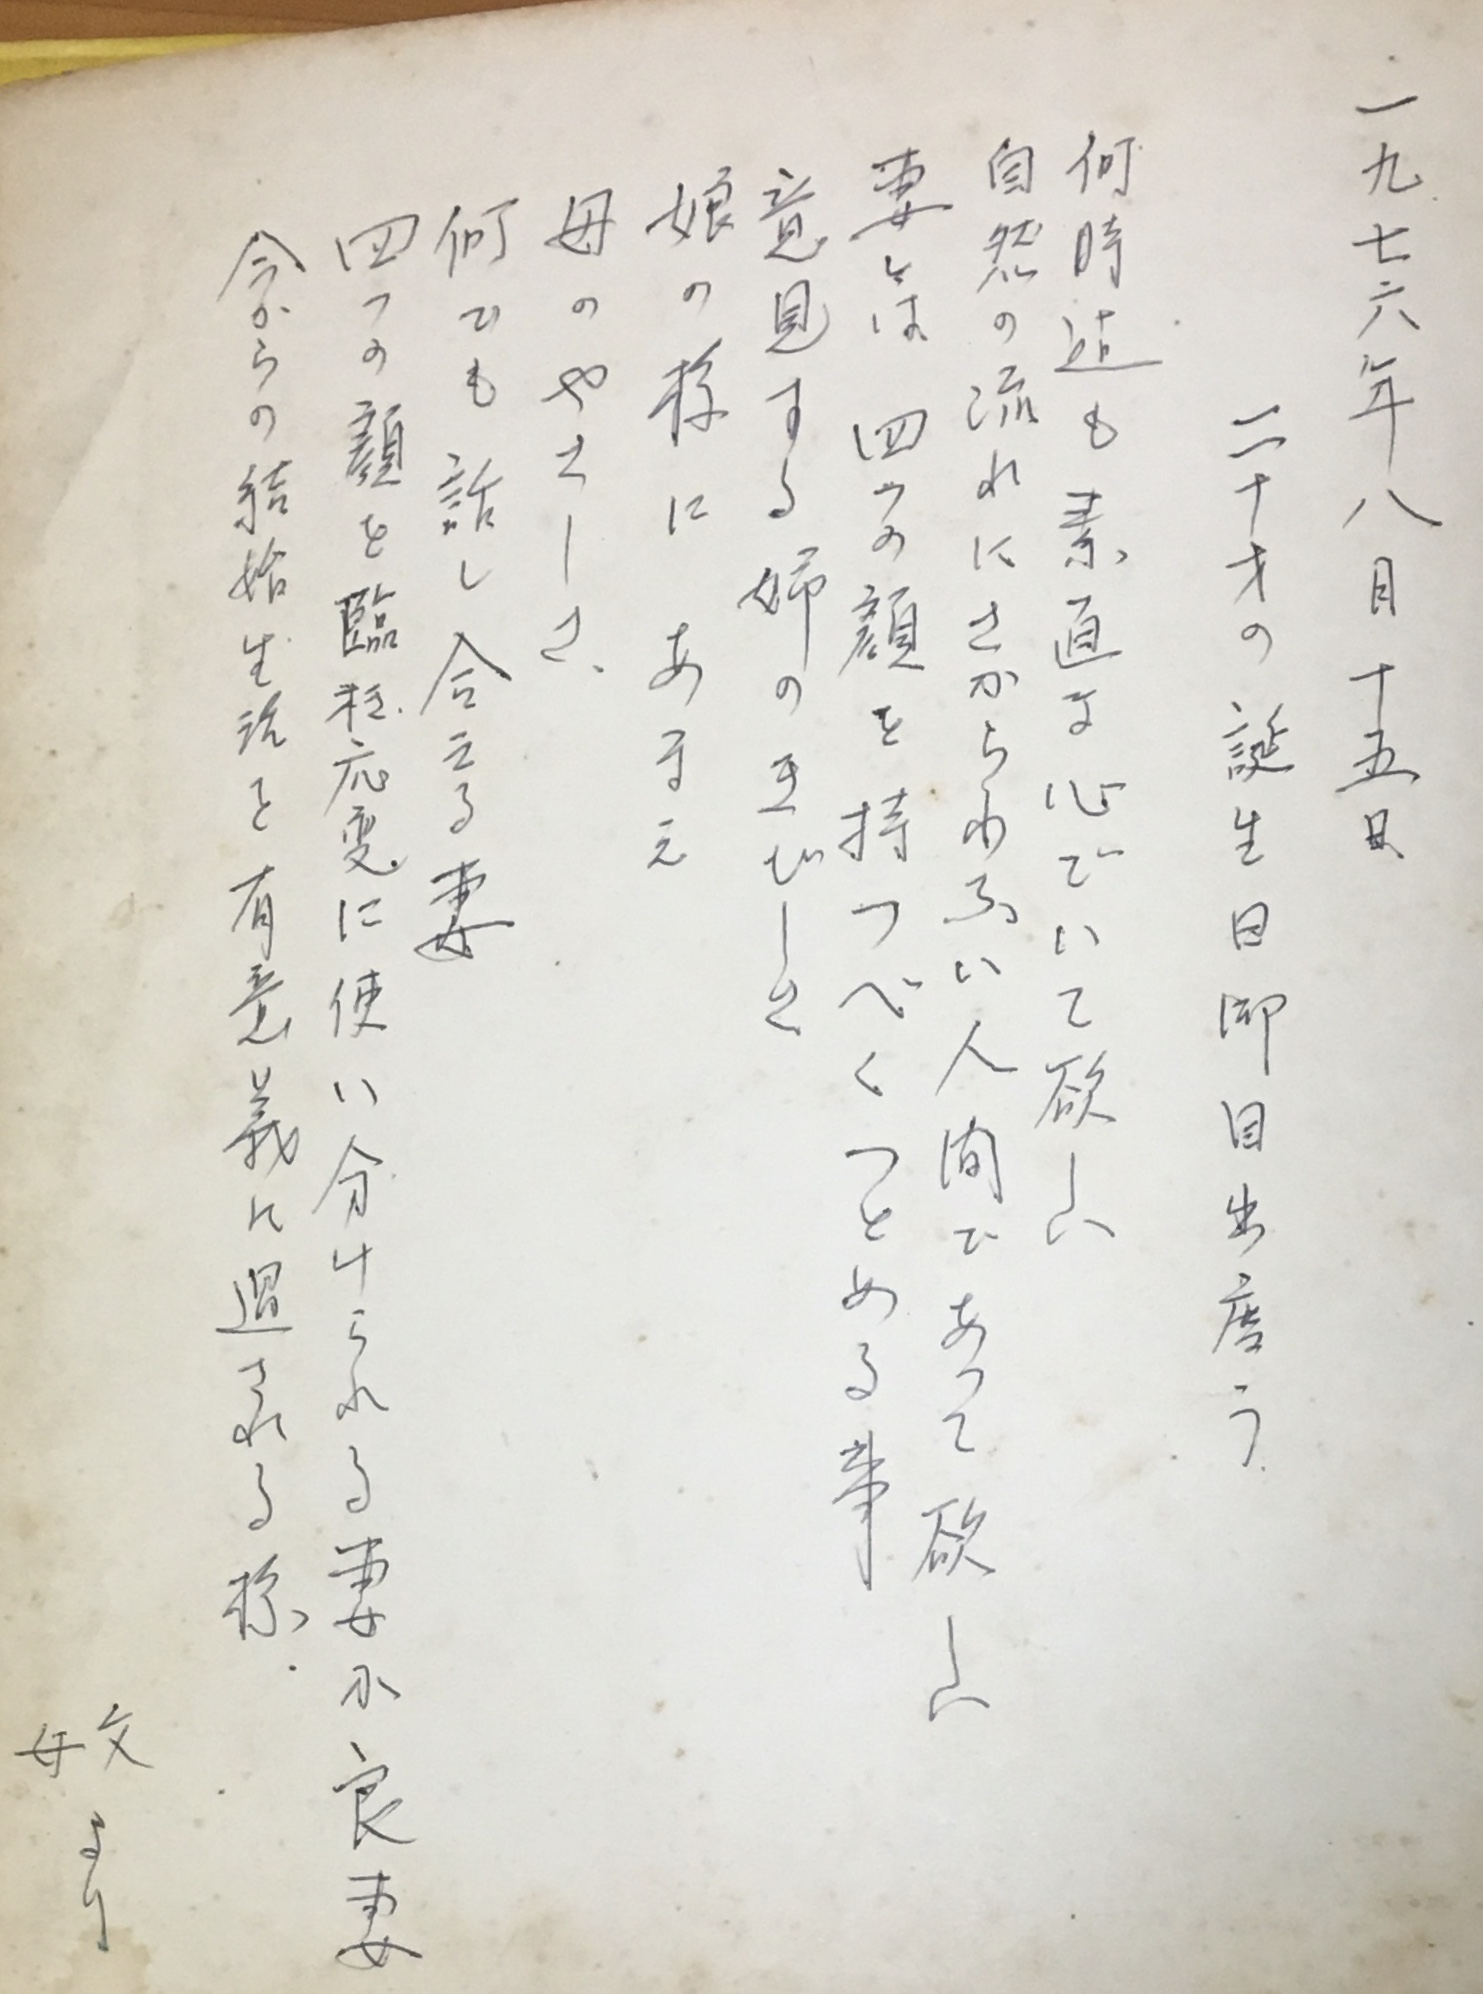 一九七六年八月十五日
二十才の誕生日御目出度う
何時迠も素直な心でいて欲しい
自然の流れにさからわない人間であって欲しい
妻とは四つの顔を持つべくつとめる事
意見する姉のきびしさ
娘の様にあまえ
母のやさしさ、
何でも話し合える妻
四つの顔を臨機応変に使い分けられる妻が良妻
今からの結婚生活を有意義に過される様.
父
母
より